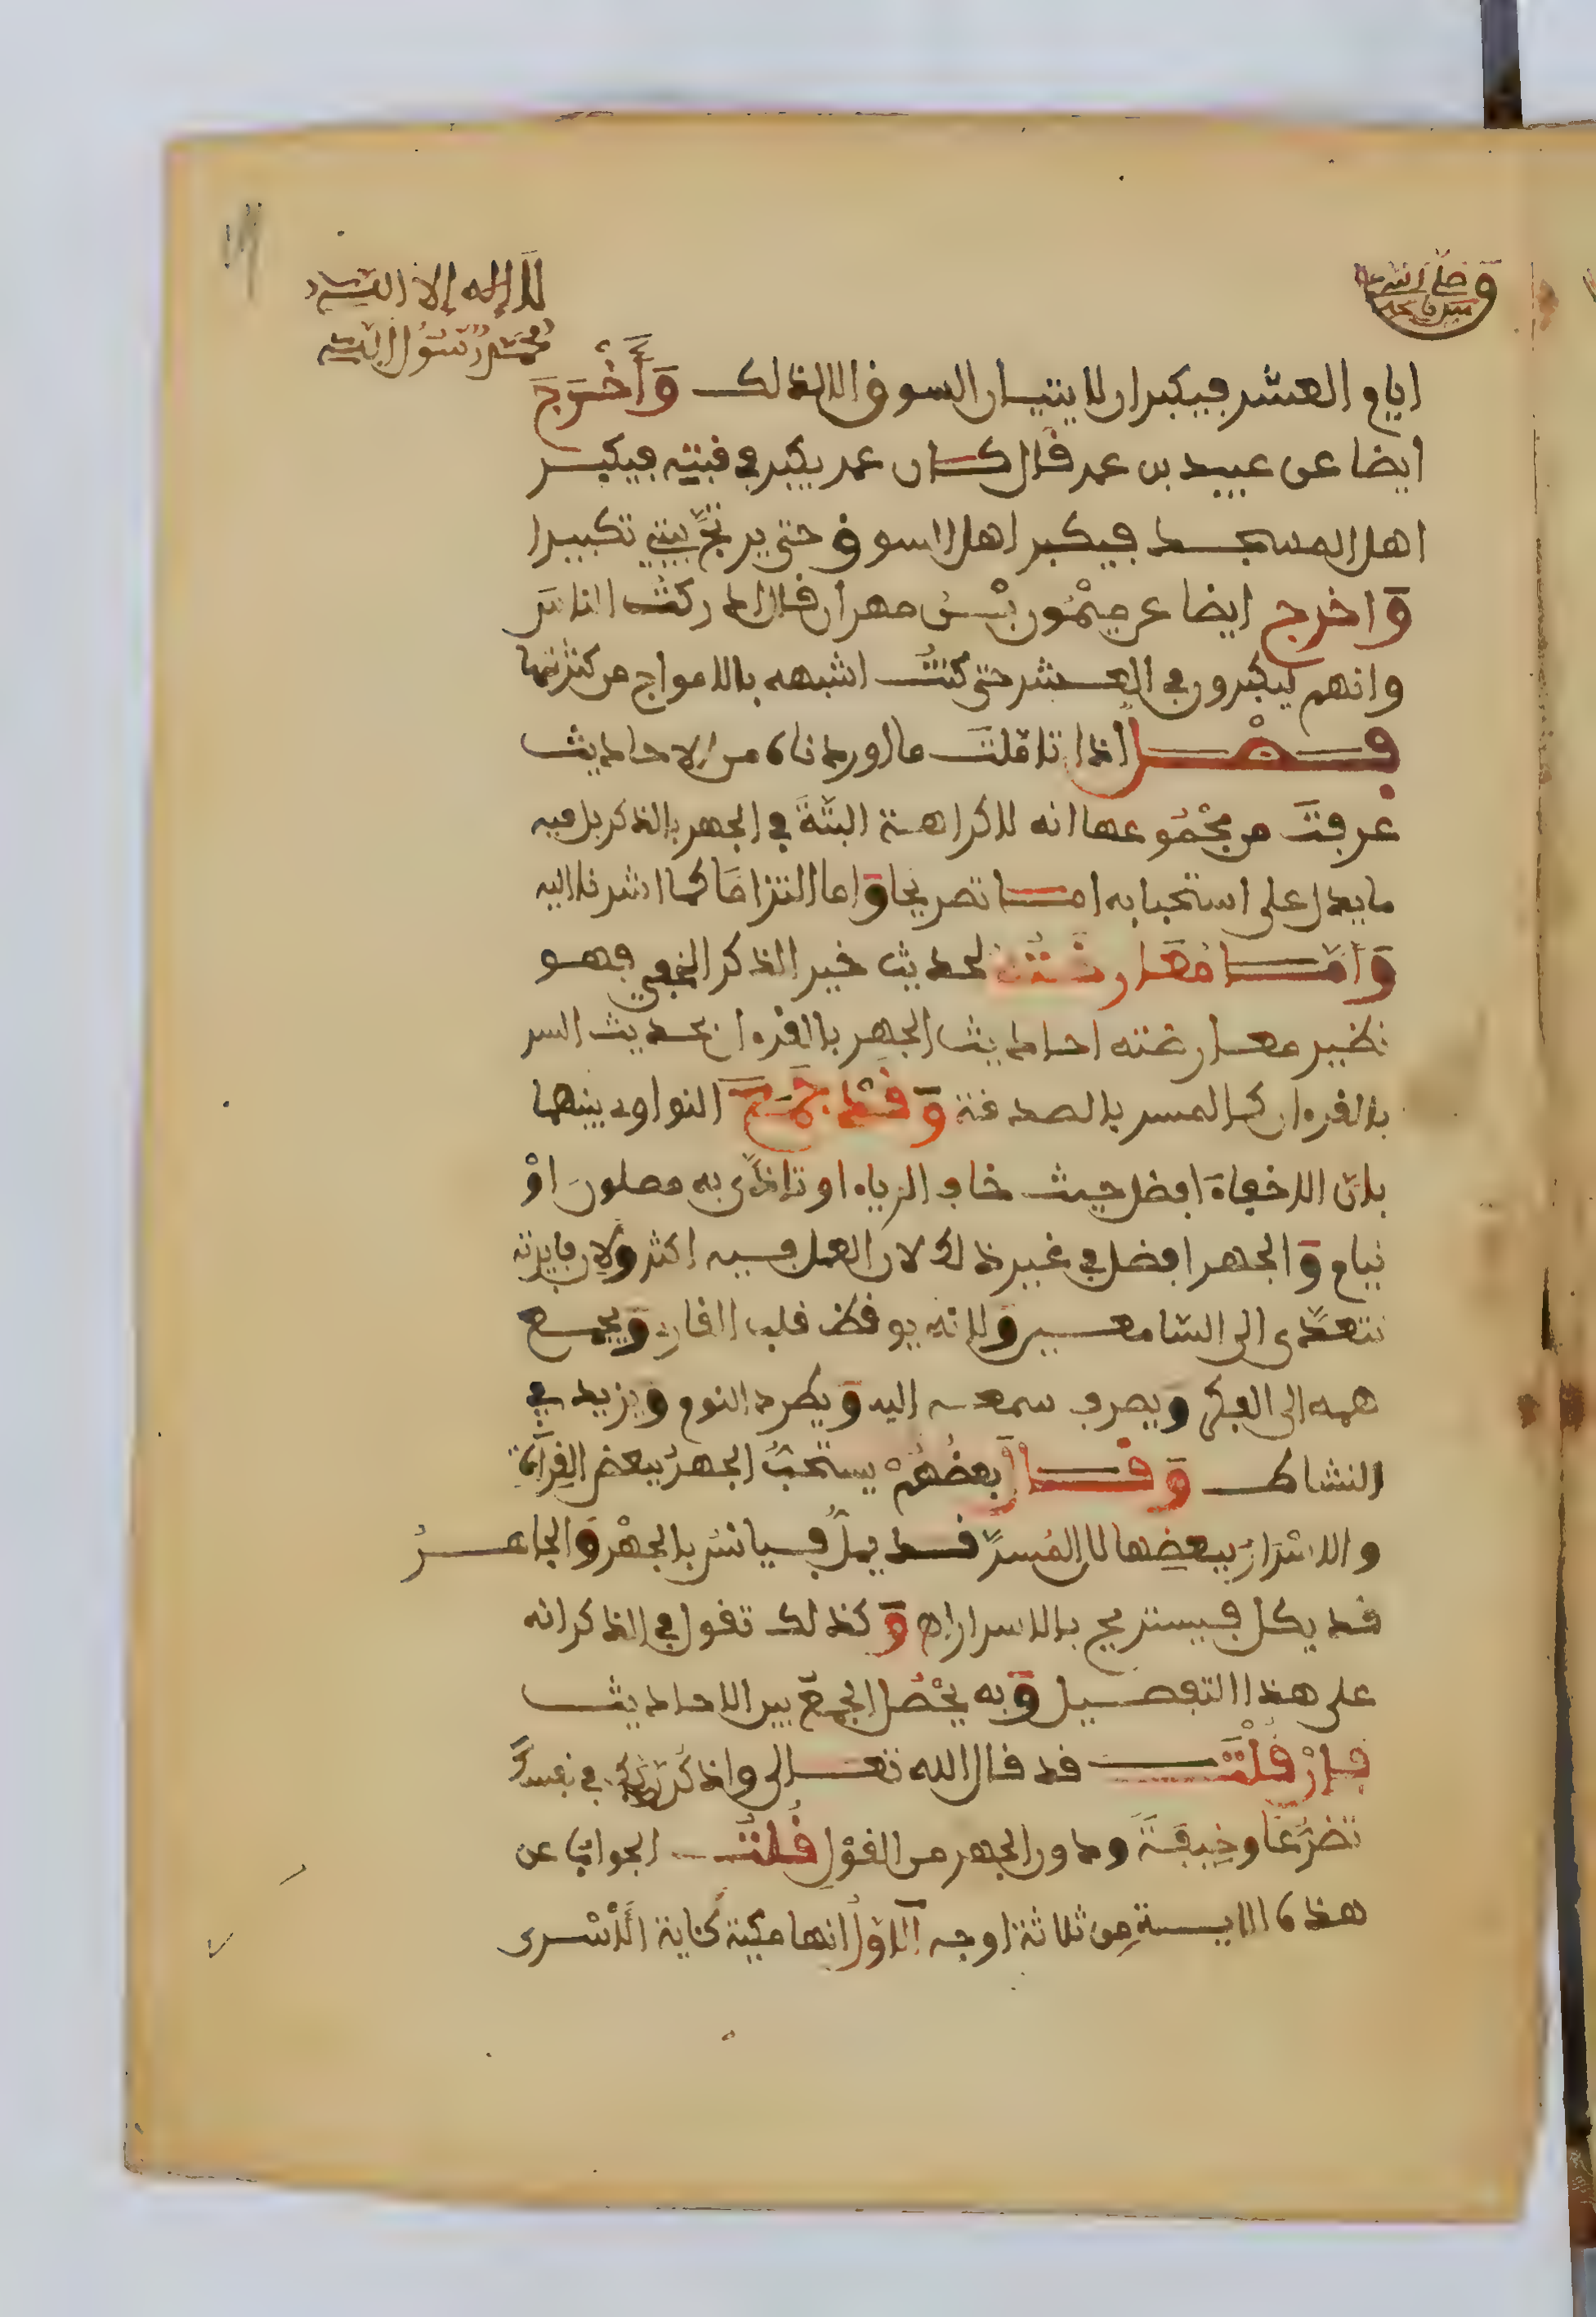 لا إله إلا الله
محمد رسول الله
ايام العشر فيكبران لا ياتيان السوق الا لذلك وَأَخْرَجَ
ايضا عن عبيد بن عمر قال كان عمر يكبر في قبته فيكبر
اهل المسجد فيكبر اهل السوق حتى يرتجّ تكبيرا
وَاخرج ايضا عن مِيْمُون بْن مهران قال ادركت الناسَ
وانهم ليكبرون في العشر حتى كنتُ اشبهه بالامواج من كثرتها
فصْل اذا تاملتَ ما اوردناه من الاحاديث
عرفتَ من مجْمُوعها انه لا كراهة البتّةَ في الجهر بالذكر بل فيه
ما يدل على استحبابه اما تصريحا وَاما التزامًا كما اشرنا اليه
وَأمّا مُعَارضَتُه لحديث خير الذكر الخفي فهو
نظير معارضته احاديث الجهر بالقرءان بحديث السر
بالقرءان كالمسر بالصدقة وَقَدْ جَمَعَ النواوي بينهما
بانّ الاخفاء افضل حيث خاف الرياء او تاذّى به مصلونَ اوْ
نيام وَالجهر افضل في غير ذلك لان العمل فيه اكثر ولان فايدته
تتعدّى الى السّامعين وَلانه يوقظ قلب القارئ وَيجمع
همه الى الفكر ويصرف سمعه اليه وَيطرد النوم ويزيد في
النشاط وَقَالَ بَعضُهُمْ يستحَبُّ الجهرُ ببعض القرآءة
والاسْرارُ ببعضِها لان المُسرّ قد يملّ فيانسُ بالجهْر وَالجاهرُ
قد يكل فيستريح بالاسرار اه وَكذلك نقول في الذكر انه
على هذا التفصيل وَبه يحْصُل الجمعَ بين الاحاديث
فَإنْ قُلْتَ قد قال الله تعالى واذكُر رَّبَّكَ في نفسكَ
تضرُّعًا وخِيفَةً ودون الجهر من القوْلِ قُلتُ الجوابُ عن
هذه الاية مِن ثلاثة اوجه الَاوّلُ انها مكية كئاية الَاسْرى